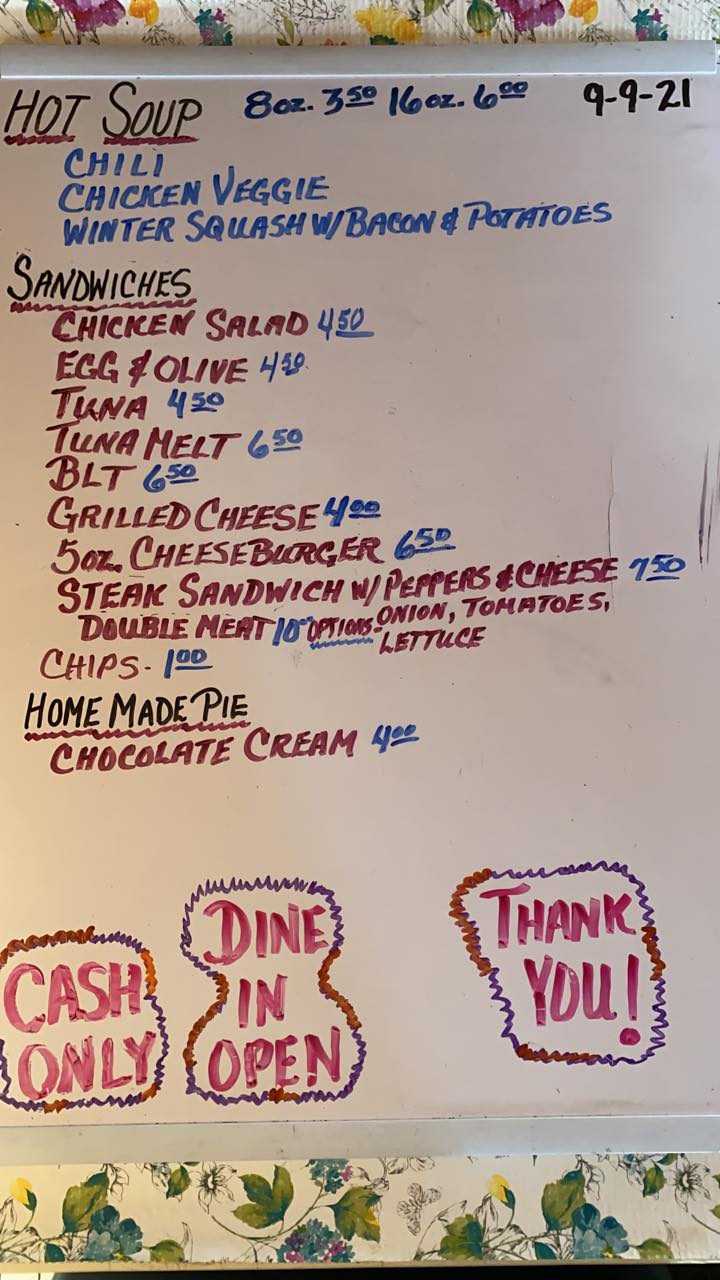 HOT SOUP 8oz. 3.50 16oz. 6.00 9-9-21
CHILI
CHICKEN VEGGIE
WINTER SQUASH W/BACON & POTATOES
SANDWICHES
CHICKEN SALAD 4.50
EGG & OLIVE 4.50
TUNA 4.50
TUNA MELT 6.50
BLT 6.50
GRILLED CHEESE 4.00
5oz. CHEESEBURGER 6.50
STEAK SANDWICH W/PEPPERS & CHEESE 7.50
DOUBLE MEAT 10.00 OPTIONS- ONION, TOMATOES,
LETTUCE
CHIPS- 1.00
HOME MADE PIE
CHOCOLATE CREAM 4.00
CASH
ONLY
DINE
IN
OPEN
THANK
YOU!